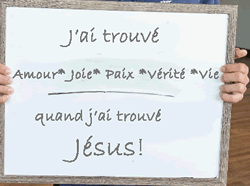 J'ai trouvé
Amour* Joie* Paix *Vérité *Vie
quand j'ai trouvé
Jésus!